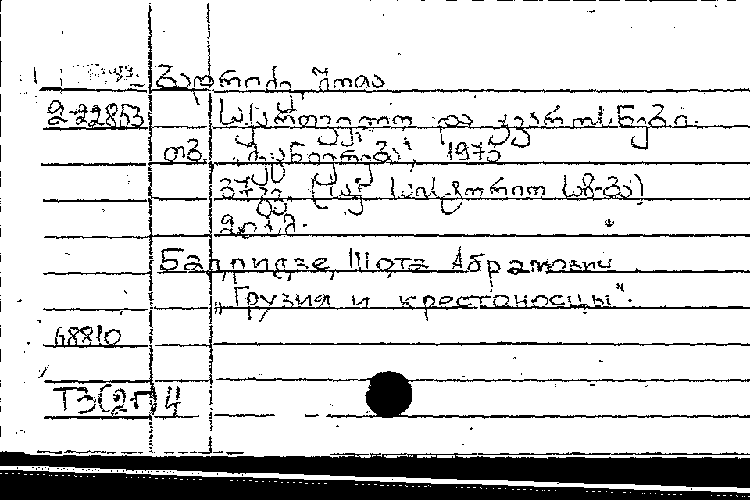 ბადრიძე, შოთა
2-22853 საქართველო და ჯვაროსნები.
თბ. „მეცნიერება", 1973
37გვ. (საქ. საისტორიო საზ-ბა)
20სმ.
Бадридзе, Шота Абрамович.
„Грузия и крестоносцы".
48810
Т3(2г)4